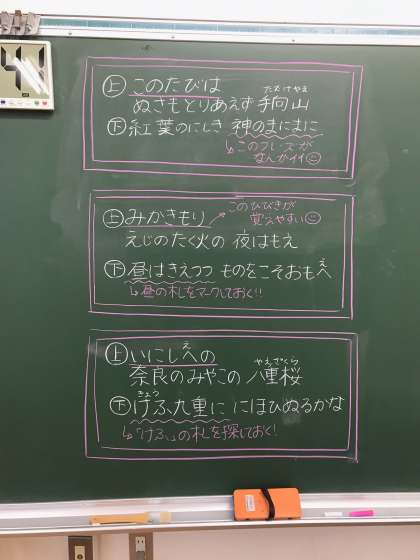 上 このたびは
ぬさもとりあえず 手向山
たむけやま
下 紅葉のにしき 神のまにまに
↳このフレーズが
なんかイイ☺
上 みかきもり
このひびきが
覚えやすい☺
えじのたく火の 夜はもえ
下 昼はきえつつ ものをこそおもへ
え
↳昼の札をマークしておく!!
上 いにしへの
え
奈良のみやこの 八重桜
やえざくら
下 けふ九重に にほひぬるかな
きょう
↳「けふ」の札を探しておく!